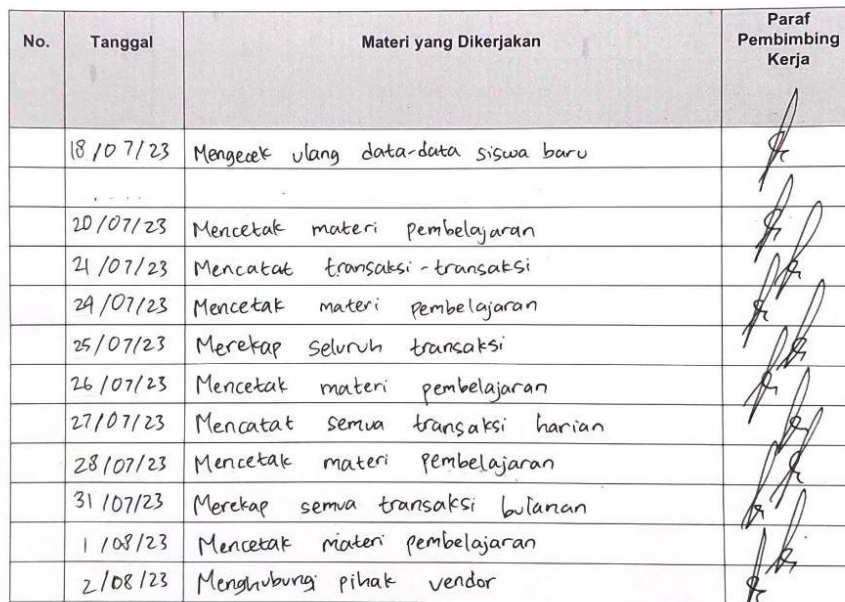 No. Tanggal Materi yang Dikerjakan Paraf Pembimbing Kerja
18/07/23 Mengecek ulang data-data siswa baru
20/07/23 Mencetak materi pembelajaran
21/07/23 Mencatat transaksi-transaksi
24/07/23 Mencetak materi pembelajaran
25/07/23 Merekap seluruh transaksi
26/07/23 Mencetak materi pembelajaran
27/07/23 Mencatat semua transaksi harian
28/07/23 Mencetak materi pembelajaran
31/07/23 Merekap semua transaksi bulanan
1/08/23 Mencetak materi pembelajaran
2/08/23 Menghubungi pihak vendor